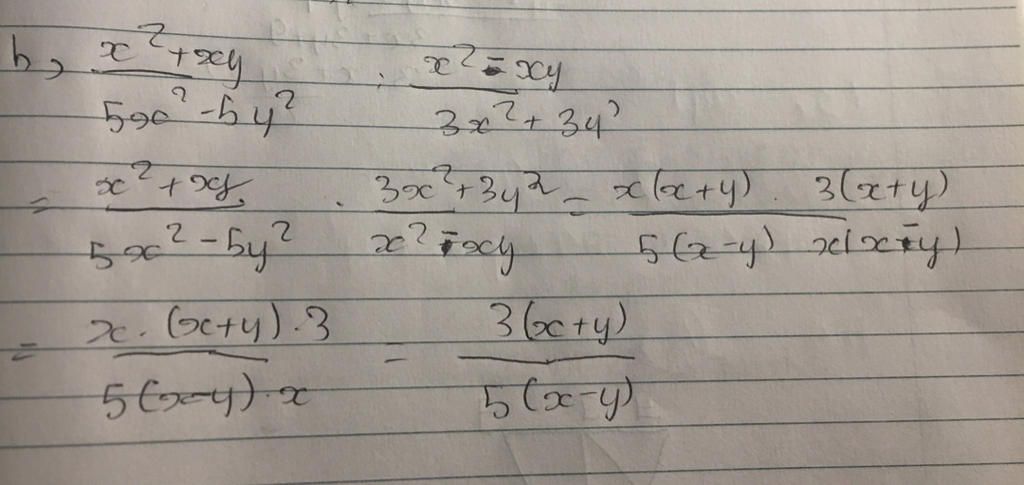 b, x²+xy / 5x²-5y² : x²-xy / 3x²+3y²
= x²+xy / 5x²-5y² . 3x²+3y² / x²-xy = x(x+y) . 3(x+y) / 5(x-y) x(x-y)
= x.(x+y).3 / 5(x-y).x = 3(x+y) / 5(x-y)